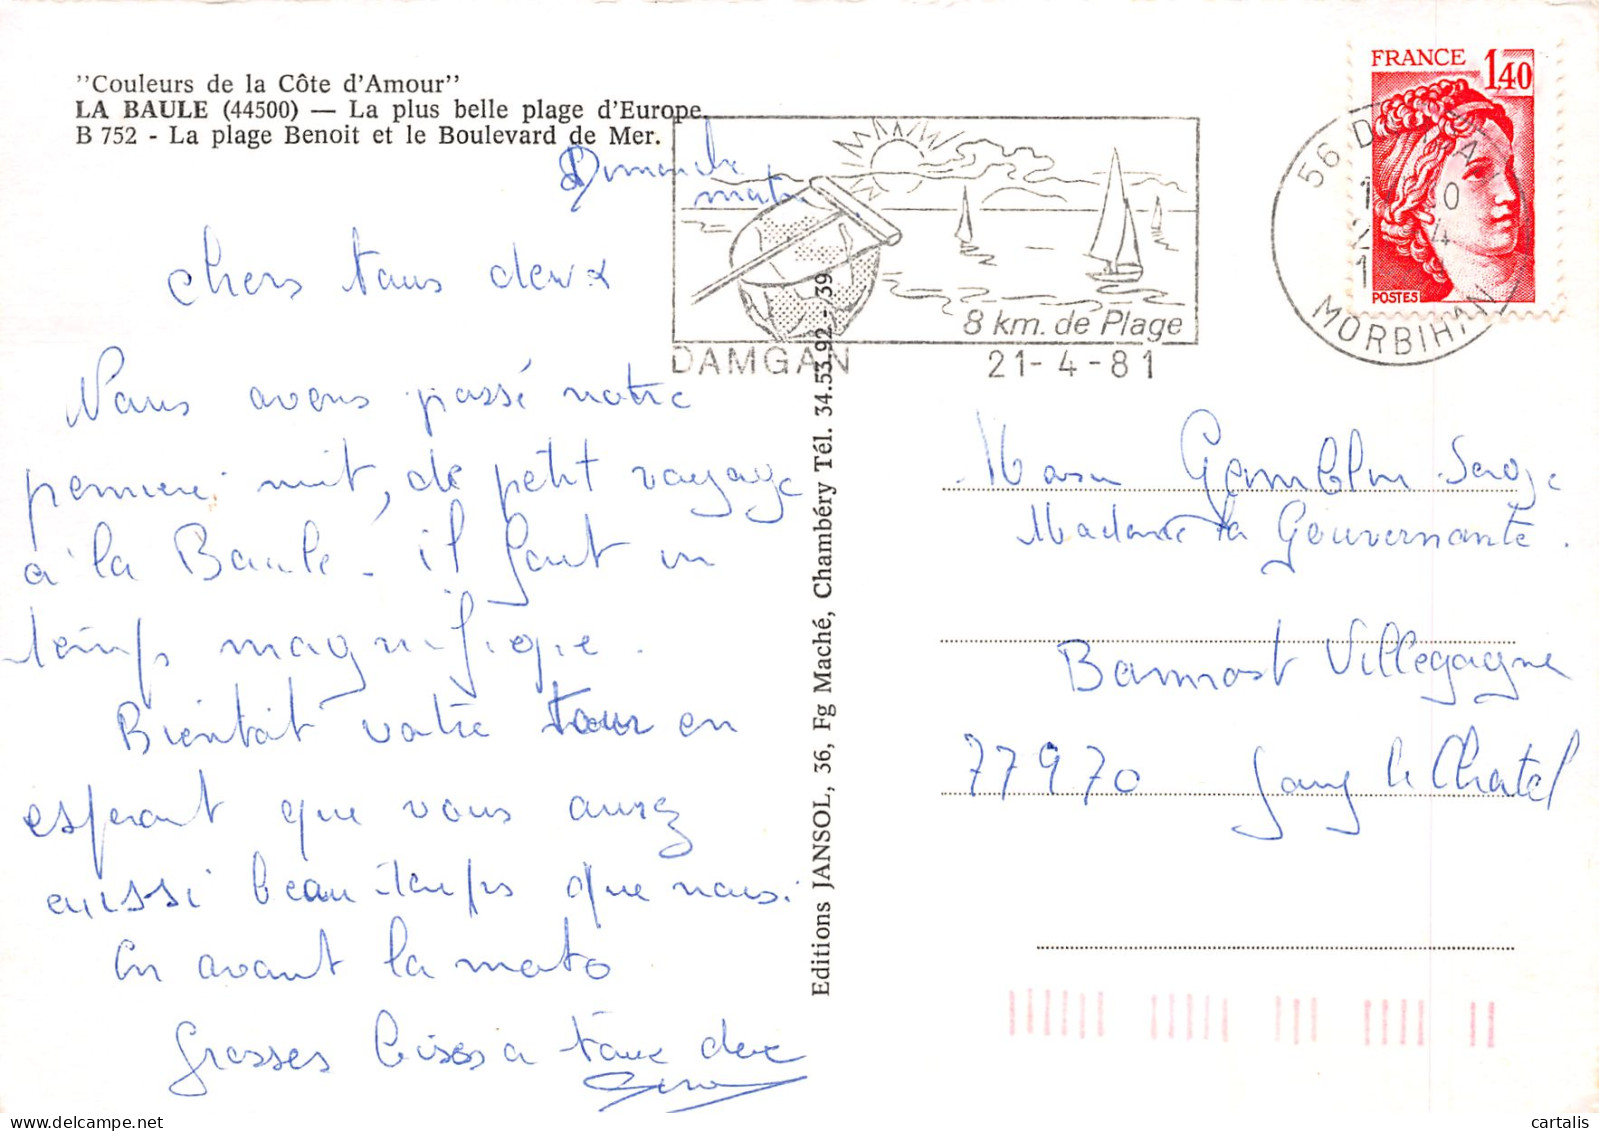 "Couleurs de la Côte d'Amour"
LA BAULE (44500) — La plus belle plage d'Europe.
B 752 - La plage Benoit et le Boulevard de Mer.
Dimanche
matin
Chers tous deux
Nous avons passé notre
premiere nuit, de petit voyage
à la Baule. il fait un
temps magnifique.
Bientôt votre tour en
esperant que vous aurez
aussi beau temps que nous.
En avant la moto
Grosses bises a tous deux
Editions JANSOL, 36, Fg Maché, Chambéry Tél. 34.53.92 - 39
8 km. de Plage
DAMGAN
21-4-81
FRANCE
1,40
POSTES
56
MORBIHAN
Serge
Madame la Gouvernante.
Villegagne
77970 Jouy le Chatel
cartalis